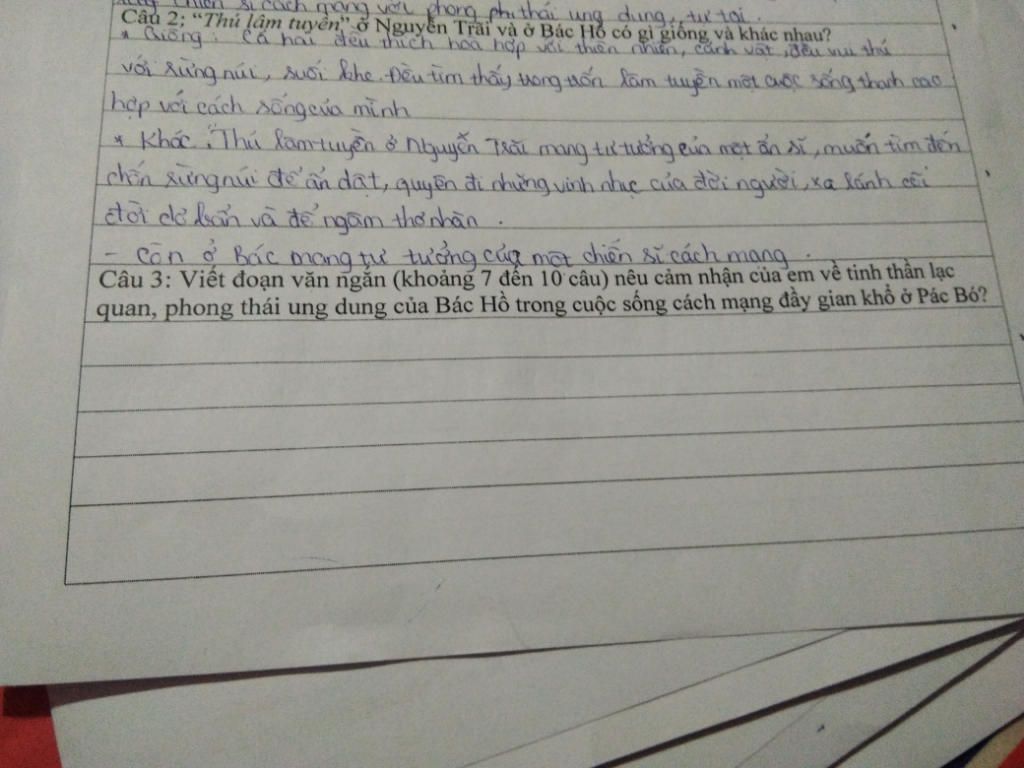 chiến sĩ cách mạng với phong thái ung dung, tự tại.
Câu 2: “Thú lâm tuyền” ở Nguyễn Trãi và ở Bác Hồ có gì giống và khác nhau?
* Giống: Cả hai đều thích hòa hợp với thiên nhiên, cảnh vật, đều vui thú
với rừng núi, suối khe. Đều tìm thấy trong chốn lâm tuyền một cuộc sống thanh cao
hợp với cách sống của mình
* Khác: Thú lâm tuyền ở Nguyễn Trãi mang tư tưởng của một ẩn sĩ, muốn tìm đến
chốn rừng núi để ẩn dật, quyên đi những vinh nhục của đời người, xa lánh cõi
đời dơ bẩn và để ngâm thơ nhàn.
- Còn ở Bác mang tư tưởng của một chiến sĩ cách mạng.
Câu 3: Viết đoạn văn ngắn (khoảng 7 đến 10 câu) nêu cảm nhận của em về tinh thần lạc
quan, phong thái ung dung của Bác Hồ trong cuộc sống cách mạng đầy gian khổ ở Pác Bó?